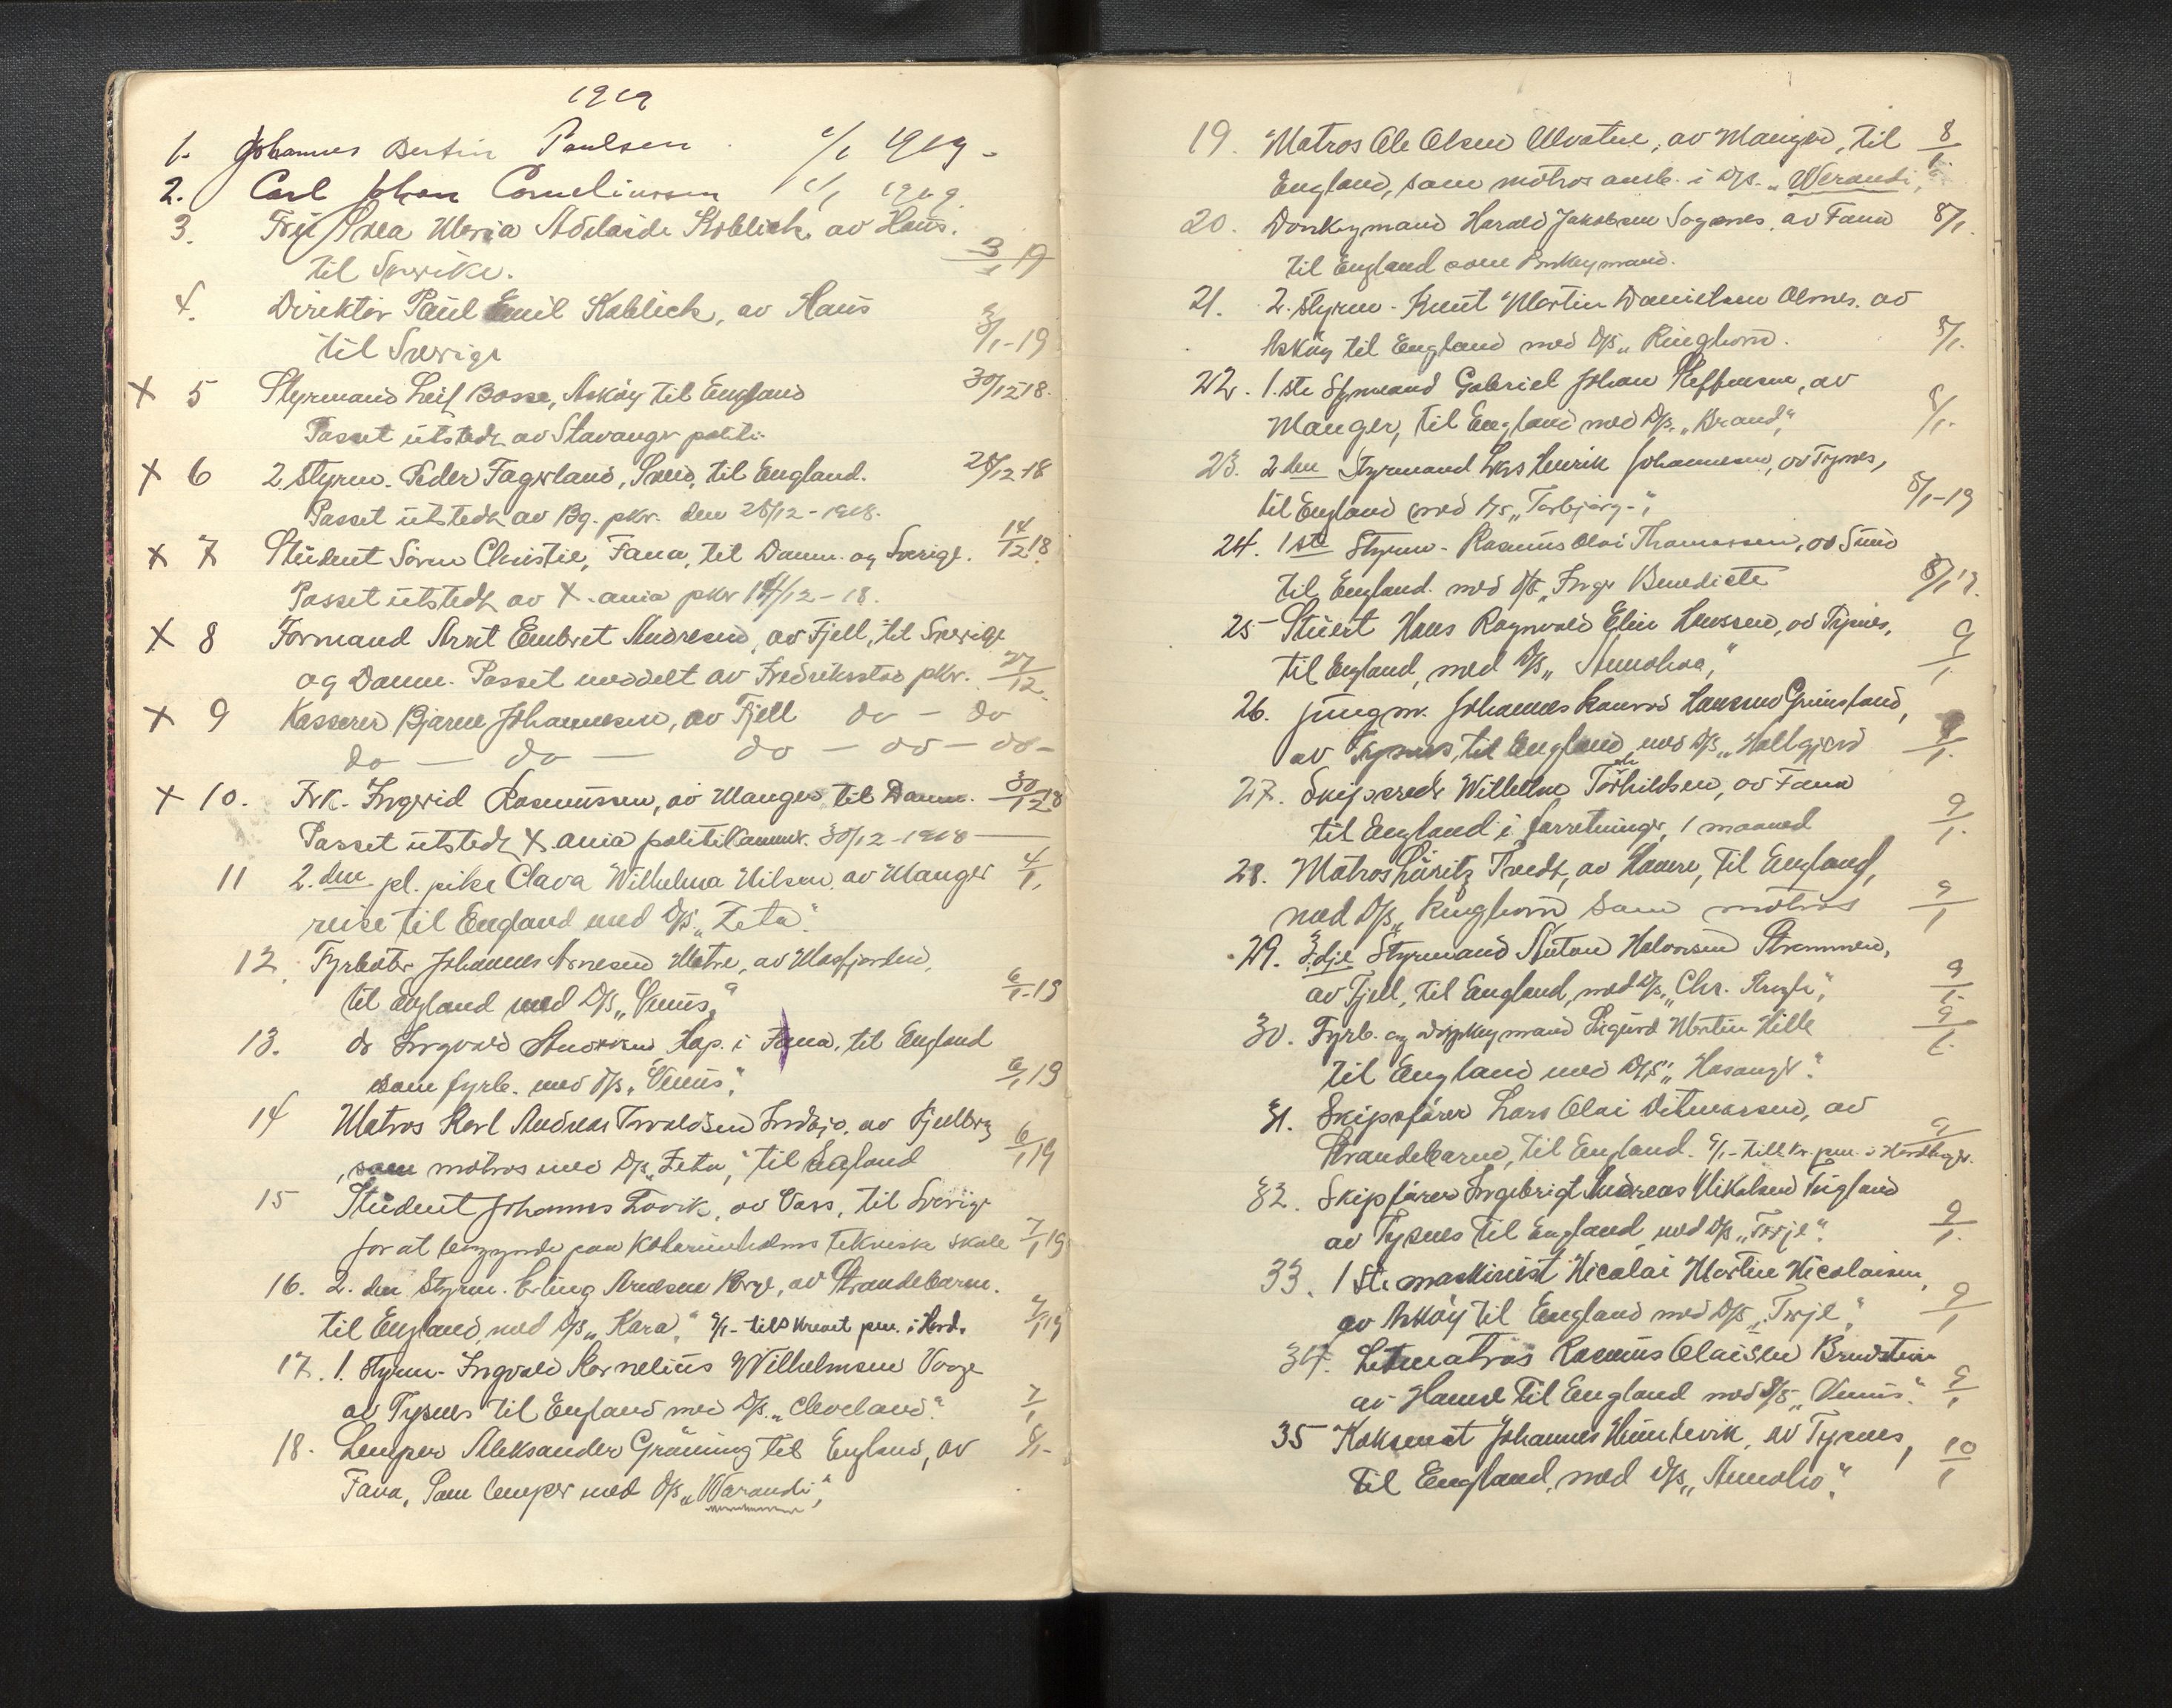 1919
1. Johannes Bertin Paulsen 2/1 1919 -
2. Carl Johan Corneliussen 2/1 1919.
3. Frü Svea Maria Adelaide Koblick, av Haus.
til Sverike. 3/1 19
4. Direktør Paul Emil Koblick, av Haus
til Sverige 3/1-19
X 5 Styrmand Leif Bosse, Askøy til England 30/12 18.
Passet utstedt av Stavanger politi.
X 6 2. Styrm. Peder Fagerland, Sveio, til England. 28/12 18
Passet utstedt av Bg. pkr. den 28/12-1918.
X 7 Student Søren Christie, Fana, til Danm. og Sverige. 14/12 18.
Passet utstedt av X.ania pkr 14/12-18.
X 8 Formand Arnt Embret Andresen, av Fjell, til Sverige
og Danm. Passet meddelt av Fredriksstad pkr. 27/12.
X 9 Kasserer Bjarne Johannesen, av Fjell do - do
do - do - do - do - do -
X 10. Frk. Ingerid Rasmussen, av Manger til Danm. 30/12 18
Passet utstedt X.ania politikammer. 30/12-1918
11 2. den pl. pike Clara Wilhelma Nilsen, av Manger 4/1.
reise til England med D/S „Zeta".
12. Fyrbøter Johannes Arnesen Matre, av Masfjorden,
til England med D/S „Venus" 6/1-19
13. do Ingvald Knap. i Fana, til England
som fyrb. med D/S „Venus". 6/1 19
14 Matros Karl Andreas Torvaldsen Indbjo. av Fjelberg
som matros med D/S „Zeta", til England 6/1 19
15 Student Johannes Lovik, av Voss, til Sverige
for at begynde paa Katerineholms tekniske skole 7/1 19
16. 2. den Styrm. Erling Arnesen Berge, av Strandebarm.
til England med D/S „Kora". 9/1- i Hard. 7/1 19
17. 1. Styrm. Ingvald Kornelius Wilhelmsen Vaage
av Tysnes til England med D/S „Cleveland". 7/1
18. Lemper Aleksander Gräning til England, av 8/1-
Fana, som lemper med D/S „Warandi",
19. Matros Ole Olsen Alvatne, av Manger, til 8/1
England, som matros ansb. i D/S. „Werandi",
20. Donkeymand Harald Jakobsen Søgnes, av Fana 8/1.
til England som donkeymand.
21. 2. styrm. Knut Martin Danielsen Olsnes. av
Askøy til England med D/S „Ringhorn". 8/1.
22. 1. ste Styrmand Gabriel Johan Steffensen, av
Manger, til England med D/S. „Brand", 8/1.
23. 2 den Styrmand Lars Henrik Johannesen, av Tysnes,
til England med D/S „Torbjørg-", 8/1-19
24. 1 ste Styrm. Rasmus Olai Thomassen, av Sund
til England med D/S „Inger Benedicte 8/1 19.
25 Stuert Hans Ragnvald Elin Hanssen, av Tysnes,
til England, med D/S „Annolico", 9/1
26. Jungm. Johannes Konrad Hanssen Grimstand,
av Tysnes, til England med D/S „Hallgjerd 9/1.
27. Skipsreder Wilhelm Torkildsen, av Fana
til England i forretninger, 1 maaned 9/1.
28. Matros Lauritz Tvedt, av Hamre, til England,
med D/S „Ringhorn som matros 9/1
29. 3.dje Styrmand Anton Halvorsen Strømmen,
av Fjell, til England, med D/S „Chr. Krogh", 9/1.
30. Fyrb. og donkeymand Sigurd Martin Hille 9/1.
til England med D/S „Hosanger".
31. Skipsfører Lars Olai Ditmarsen, av
Strandebarm, til England. 9/1- 9/1
32. Skipsfører Ingebrigt Andreas Mikalsen Teigland
av Tysnes til England med D/S „Terje". 9/1.
33. 1 ste maskinist Nicolai Martin Nicolaisen,
av Askøy til England med D/S „Terje", 9/1
34. Letmatros Rasmus Olaisen Brudstein
av Hamre til England med D/S „Venus". 9/1
35 Koksmat Johannes Humlevik, av Tysnes, 10/1
til England, med D/S „Annolio".